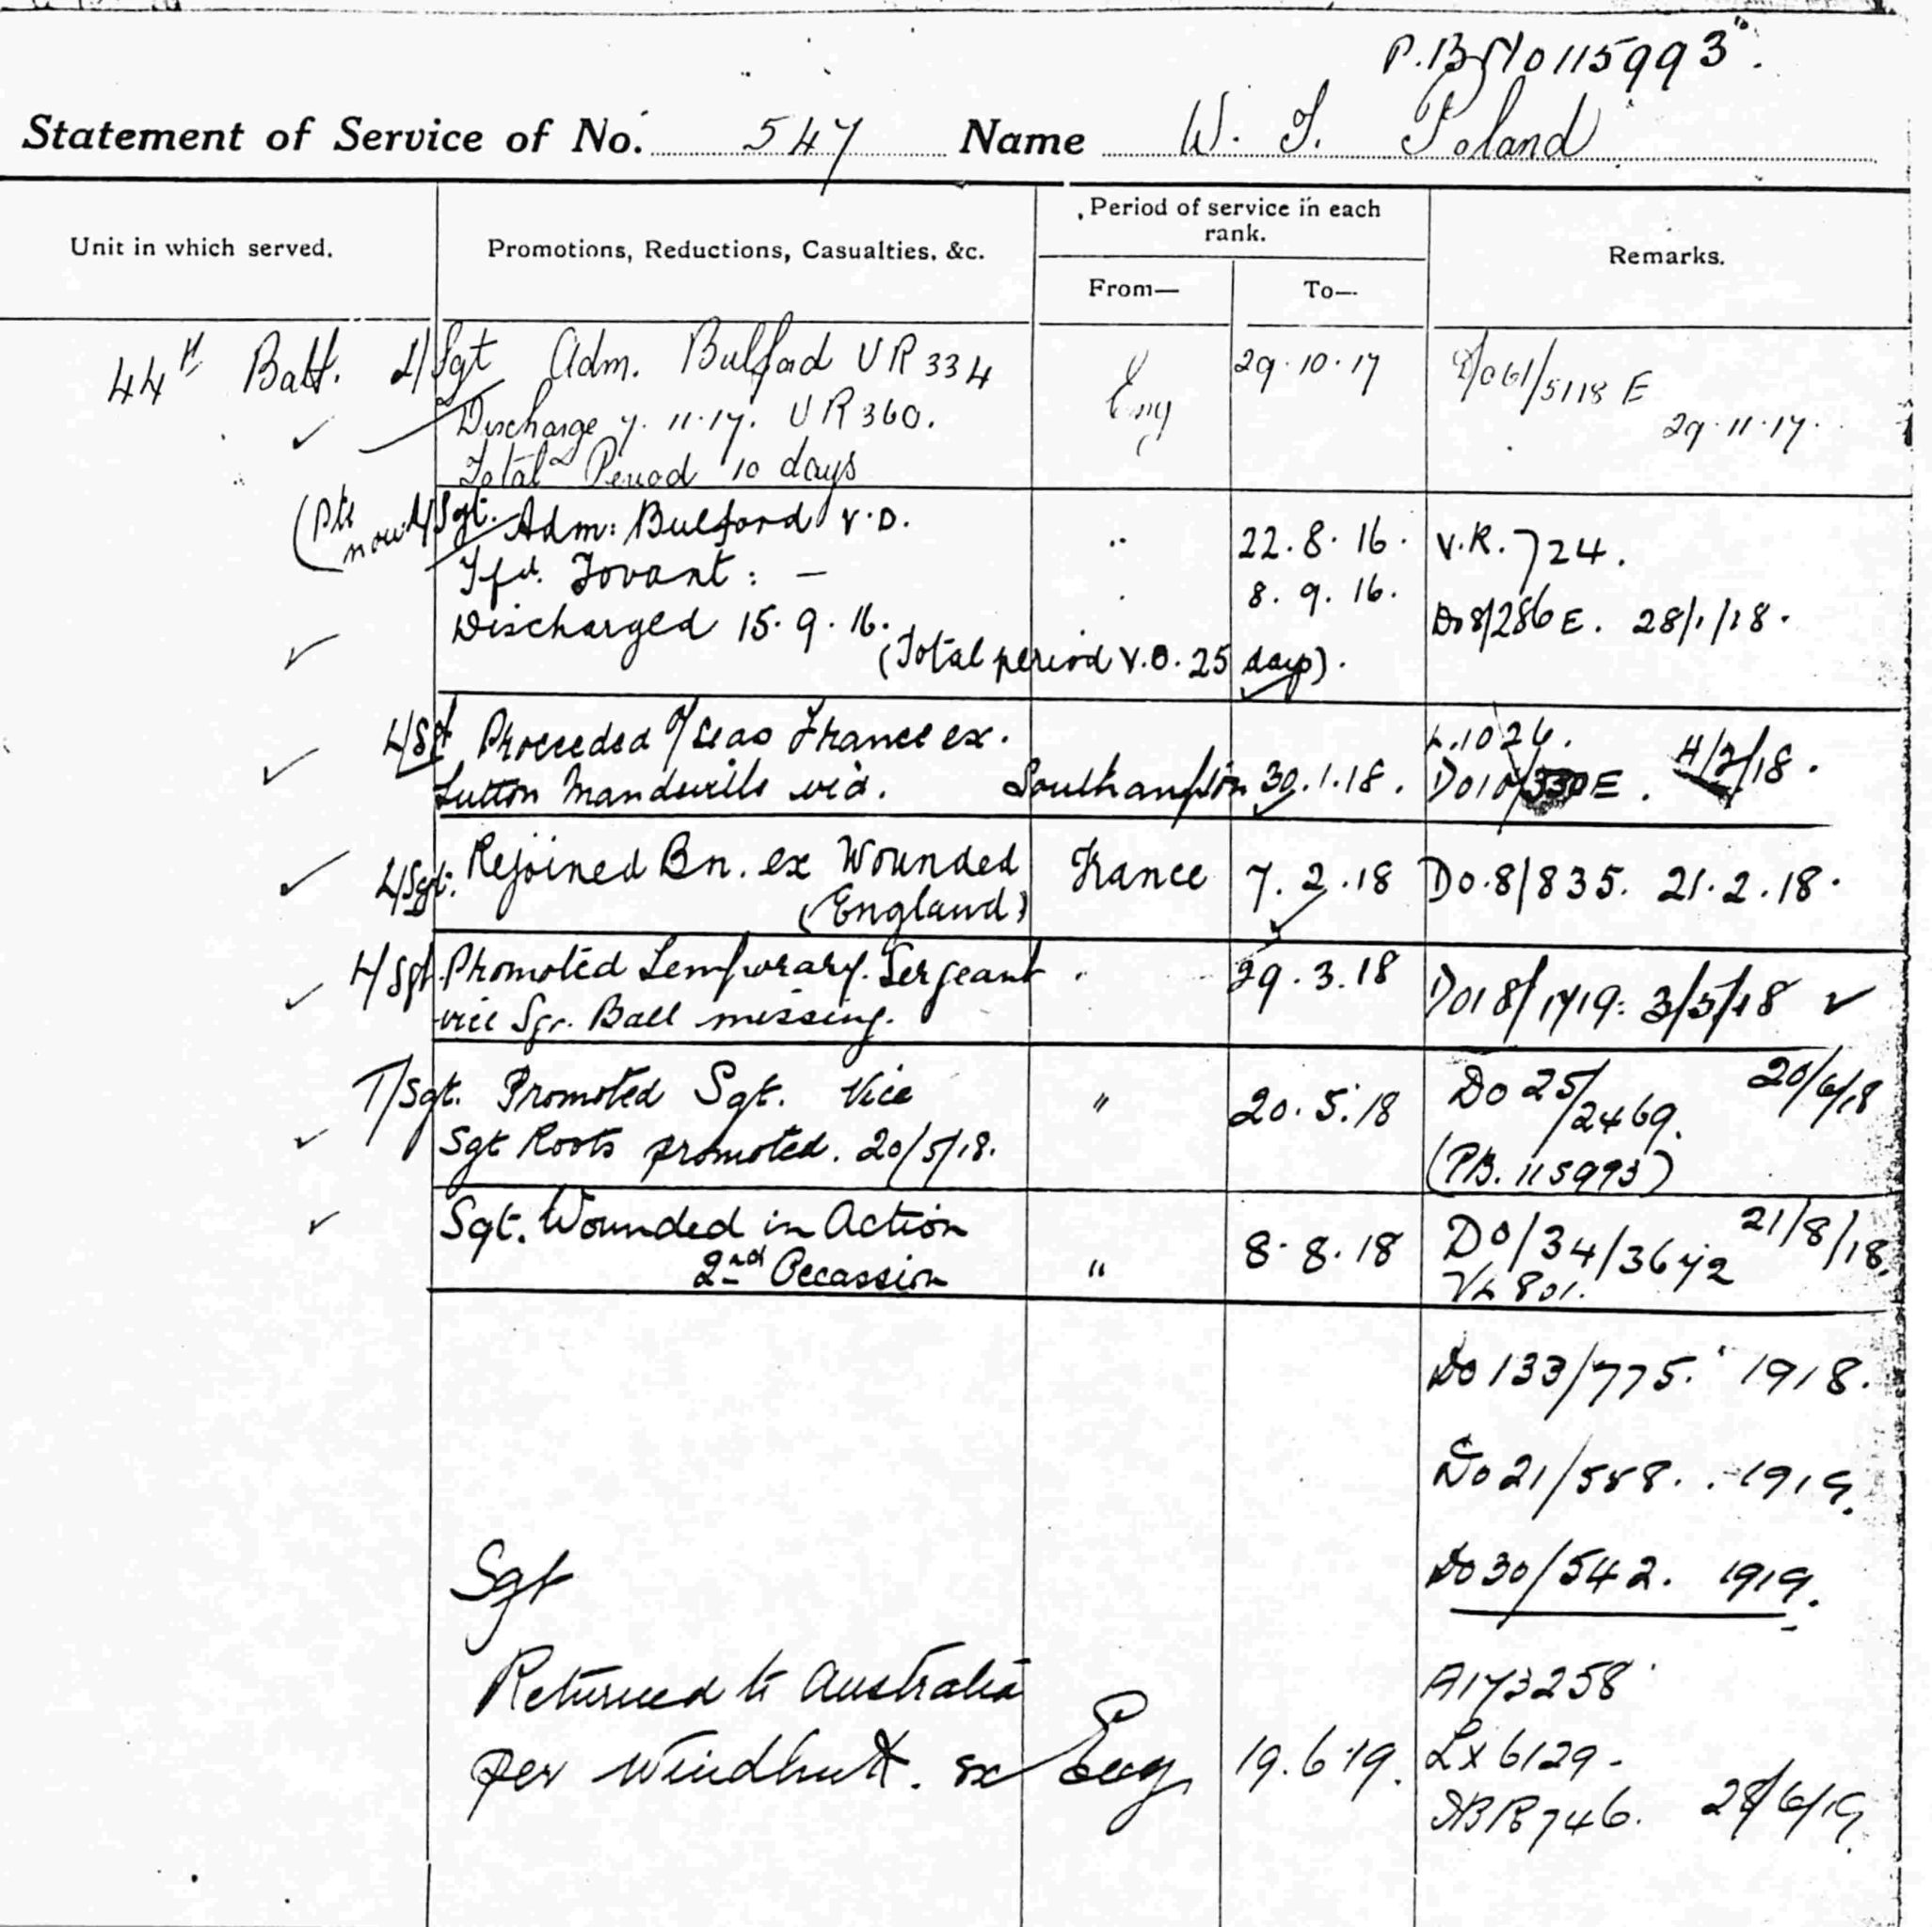 P.B. No 115993
Statement of Service of No. 547 Name W. J. Poland
Unit in which served.
Promotions, Reductions, Casualties, &c.
Period of service in each rank.
From—
To—
Remarks.
44th Batt. L/Sgt Adm. Bulford VR 334 Eng 29.10.17 DO61/5118 E
Discharge 7.11.17. VR 360. 29.11.17.
Total Period 10 days
(Pte now L/Sgt. Adm: Bulford V.D. " 22.8.16. V.R. 724.
Tfd. : — 8.9.16.
Discharged 15.9.16. Do8/286E. 28/1/18.
(Total period V.D. 25 days).
L/Sgt Proceeded O/Seas France ex. L.1026.
Sutton Mandeville via. Southampton 30.1.18. Do10/330E. 4/2/18.
L/Sgt. Rejoined Bn. ex Wounded France 7.2.18 Do.8/835. 21.2.18.
(England)
L/Sgt. Promoted Temporary. Sergeant " 29.3.18 Do18/1719: 3/5/18
vice Sgr. Ball missing.
T/Sgt. Promoted Sgt. Vice " 20.5.18 Do 25/2469. 20/6/18
Sgt Roots promoted. 20/5/18. (PB. 115993)
Sgt. Wounded in Action 8.8.18 Do/34/3672 21/8/18.
2nd Occassion " VL 801.
Do 133/775. 1918.
Do 21/588. 1919.
Do 30/542. 1919.
Sgt
Returned to Australia A173258
per Windhuk. ex Eng 19.6.19. LX 6129.
746. 28/6/19.